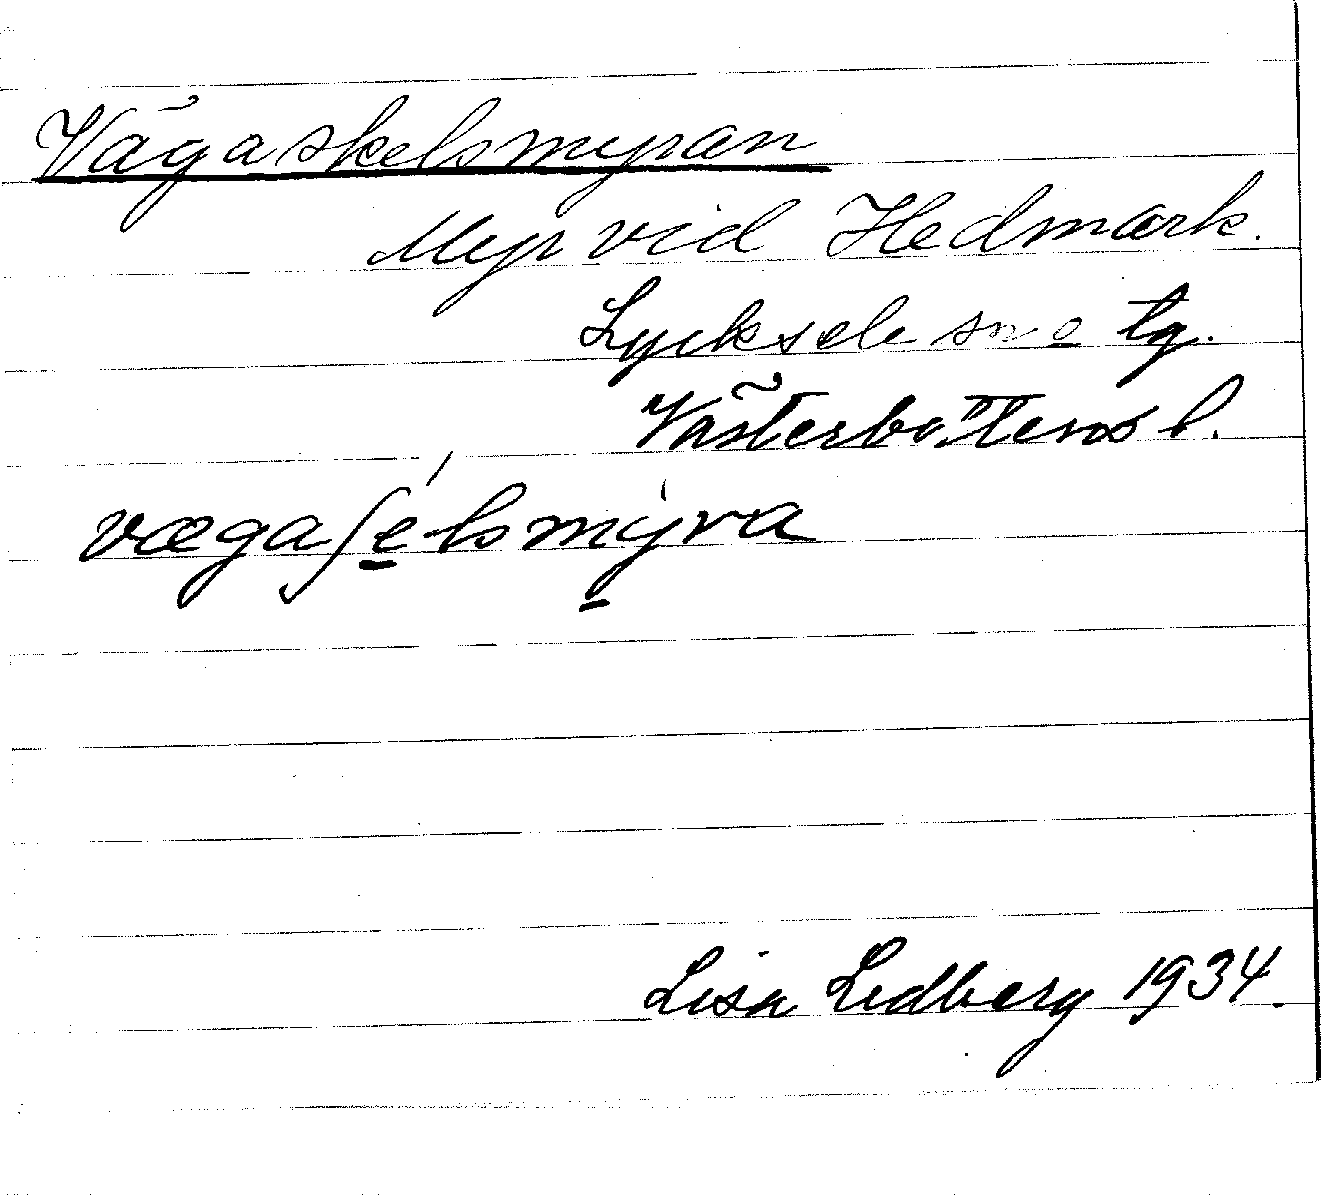 Vägaskelsmyran
Myr vid Hedmark.
Lycksele sn o tg.
Västerbottens l.
vægaʃe̱´lsmy̱ra
Lisa Lidberg 1934.